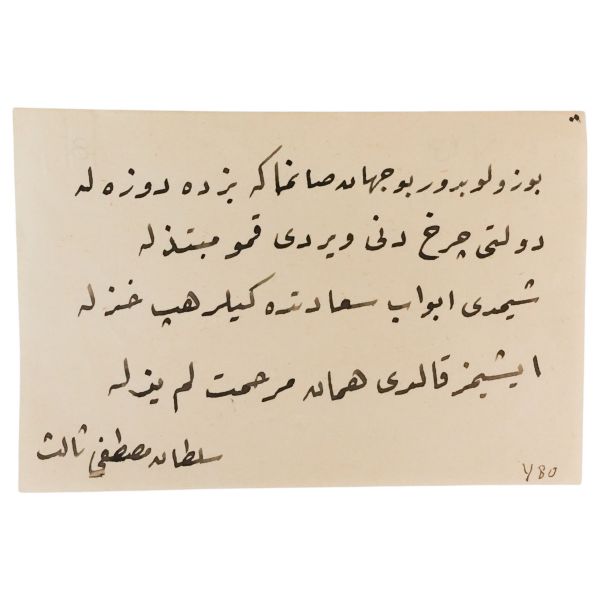 بوزولوبدور بو جهان صانماكه بزده دوزه له
دولتی چرخ دنی ویردی قمو مبتذله
شیمدی ابواب سعادتده كیلر هپ خزله
ایشیمز قالدی همان مرحمت لم یزله
سلطان مصطفی ثالث